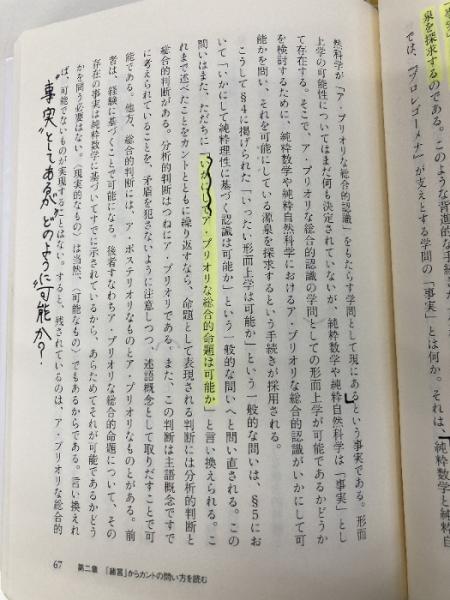 泉を探求するのである。このような背進的な手続き
では、『プロレゴーメナ』が支えとする学問の「事実」とは何か。それは、「純粋数学と
然科学が「ア・プリオリな総合的認識」をもたらす学問として現にあるという事実である。形而
上学の可能性についてはまだ何も決定されていないが、純粋数学や純粋自然科学は「事実」とし
て存在する。そこで、ア・プリオリな総合的認識の学問としての形而上学が可能であるかどうか
を検討するために、純粋数学や純粋自然科学におけるア・プリオリな総合的認識がいかにして可
能かを問い、それを可能にしている源泉を探求するという手続きが採用される。
こうして§4に掲げられた「いったい形而上学は可能か」という一般的な問いは、§5にお
いて「いかにして純粋理性に基づく認識は可能か」という一般的な問いへと問い直される。この
問いはまた、ただちに「いかにしてア・プリオリな総合的命題は可能か」と言い換えられる。こ
れまで述べたことをカントとともに繰り返すなら、命題として表現される判断には分析的判断と
総合的判断がある。分析的判断はつねにア・プリオリである。また、この判断は主語概念ですで
に考えられていることを、矛盾を犯さないように注意しつつ、述語概念として取りだすことで可
能である。他方、総合的判断には、ア・ポステリオリなものとア・プリオリなものとがある。前
者は、経験に基づくことで可能になる。後者すなわちア・プリオリな総合的命題について、その
存在の事実は純粋数学に基づいてすでに示されているから、あらためてそれが可能であるかどう
かを問う必要はない。〈現実的なもの〉は当然、〈可能なもの〉でもあるからである。言い換えれ
ば、可能でないものが実現することはない。すると、残されているのは、ア・プリオリな総合的
"事実"としてあるが、どのように"可能か?"
67 第二章 「緒言」からカントの問い方を読む